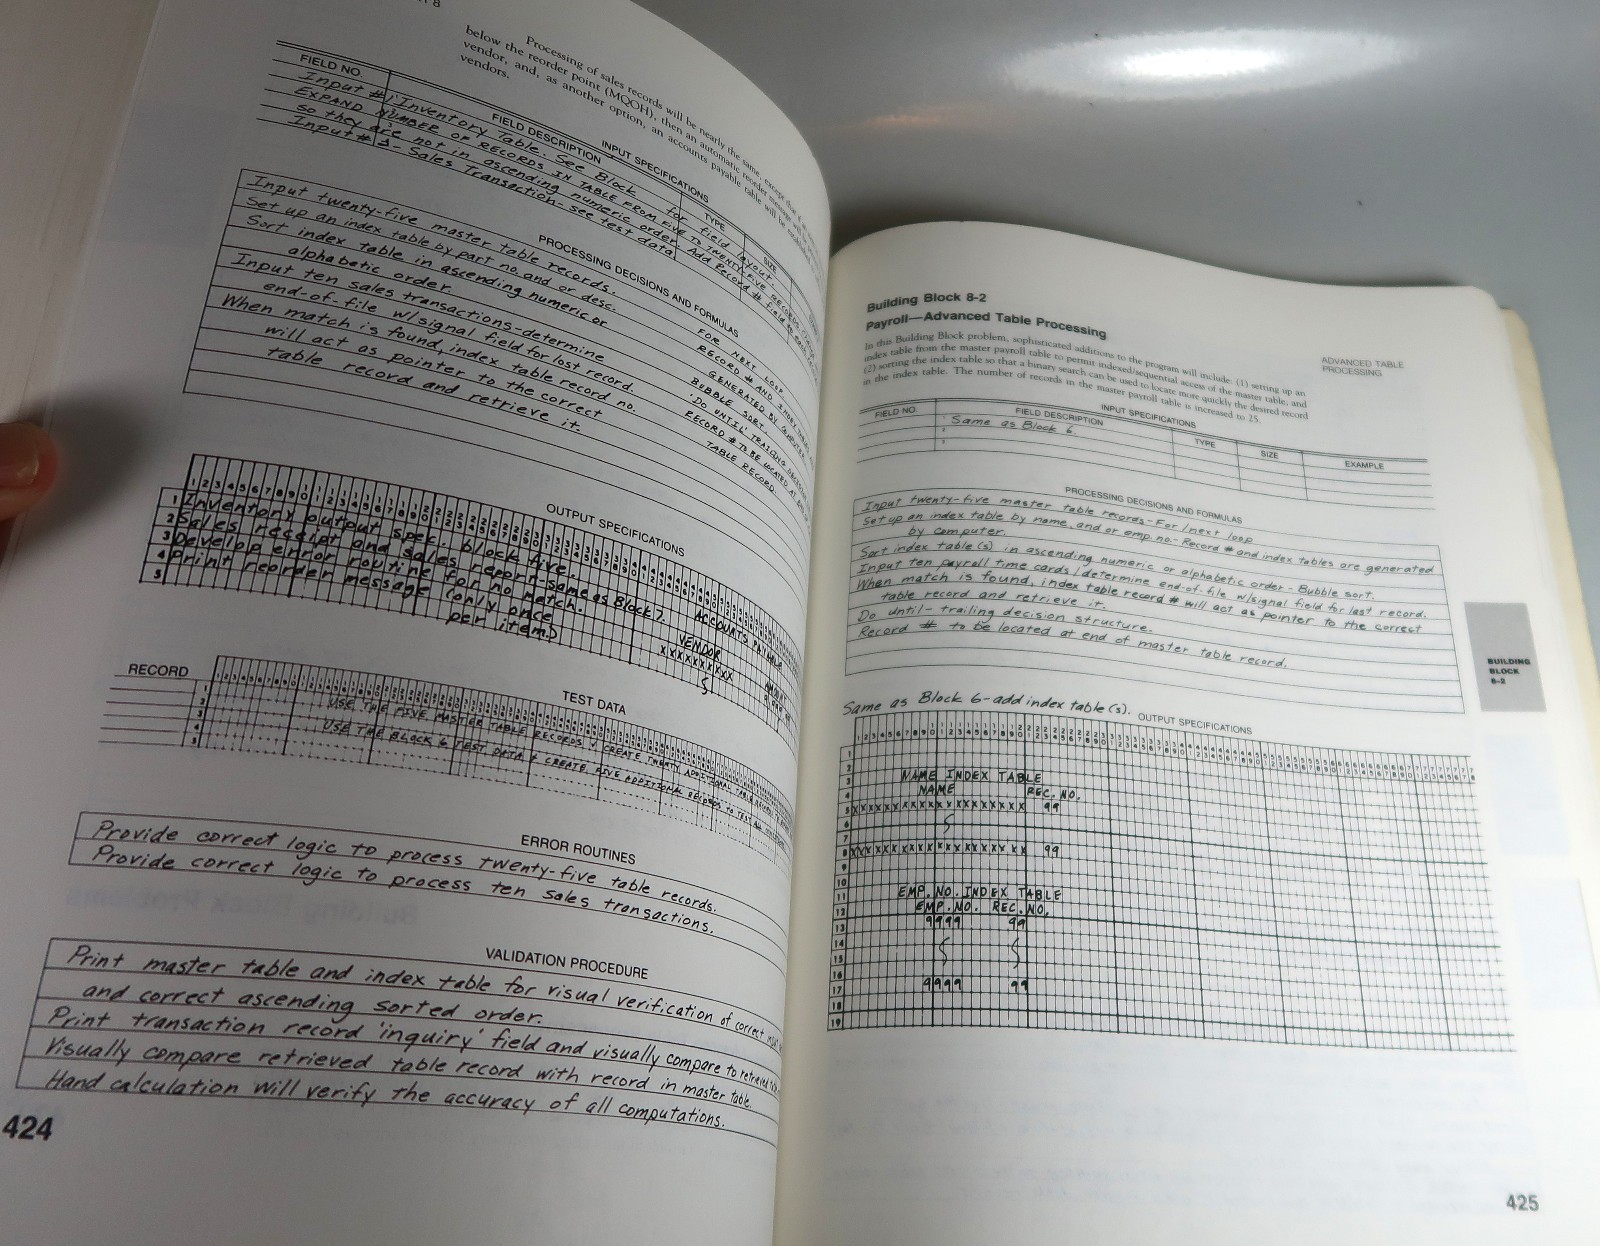 Processing of sales records will be nearly the same, except that if
below the reorder point (MQOH), then an automatic reorder message will be
vendor, and, as another option, an accounts payable table will be
vendors.
INPUT SPECIFICATIONS
FIELD NO. FIELD DESCRIPTION TYPE SIZE
Input #1 Inventory Table. See Block for field layout.
EXPAND NUMBER OF RECORDS IN TABLE FROM FIVE TO TWENTY-FIVE RECORDS.
so they are not in ascending numeric order. Add Record # field to each
Input # 2- Sales Transaction- see test data
PROCESSING DECISIONS AND FORMULAS
Input twenty-five master table records. FOR NEXT LOOP
Set up an index table by part no. and or desc. RECORD # AND INDEX TABLES
Sort index table in ascending numeric or GENERATED BY COMPUTER
alphabetic order. BUBBLE SORT.
Input ten sales transactions-determine 'DO UNTIL' TRAILING DECISION
end-of-file w/signal field for lost record. RECORD # TO BE LOCATED AT END
When match is found, index table record no. TABLE RECORD.
will act as pointer to the correct
table record and retrieve it.
OUTPUT SPECIFICATIONS
1 Inventory output spec. block five.
2 Sales receipt and sales report-same as Block 7. ACCOUNTS PAYABLE
3 Develop error routine for no match. VENDOR
4 Print reorder message (only once XXXXXXXXX
5 per item.)
RECORD TEST DATA
1 USE THE FIVE MASTER TABLE RECORDS & CREATE TWENTY ADDITIONAL TABLE
2 USE THE BLOCK 6 TEST DATA & CREATE FIVE ADDITIONAL RECORDS TO TEST
3
4
5
ERROR ROUTINES
Provide correct logic to process twenty-five table records.
Provide correct logic to process ten sales transactions.
VALIDATION PROCEDURE
Print master table and index table for visual verification of correct
and correct ascending sorted order.
Print transaction record 'inquiry' field and visually compare to retrieved
Visually compare retrieved table record with record in master table.
Hand calculation will verify the accuracy of all computations.
424
Building Block 8-2
Payroll—Advanced Table Processing
ADVANCED TABLE
PROCESSING
In this Building Block problem, sophisticated additions to the program will include: (1) setting up an
index table from the master payroll table to permit indexed/sequential access of the master table, and
(2) sorting the index table so that a binary search can be used to locate more quickly the desired record
in the index table. The number of records in the master payroll table is increased to 25.
INPUT SPECIFICATIONS
FIELD NO. FIELD DESCRIPTION TYPE SIZE EXAMPLE
Same as Block 6
PROCESSING DECISIONS AND FORMULAS
Input twenty-five master table records-For/next loop
Set up an index table by name, and or emp. no.- Record # and index tables are generated
by computer.
Sort index table(s) in ascending numeric or alphabetic order- Bubble sort.
Input ten payroll time cards/determine end-of-file w/signal field for last record.
When match is found, index table record # will act as pointer to the correct
table record and retrieve it.
Do until- trailing decision structure.
Record # to be located at end of master table record.
BUILDING
BLOCK
8-2
Same as Block 6-add index table(s).
OUTPUT SPECIFICATIONS
1
2
3 NAME INDEX TABLE
4 NAME REC. NO.
5 XXXXXXXXXXXXXXXXXXXX 99
6
7
8 XXXXXXXXXXXXXXXXXXXX 99
9
10
11 EMP. NO. INDEX TABLE
12 EMP. NO. REC. NO.
13 9999 99
14
15
16
17 9999 99
18
19
425